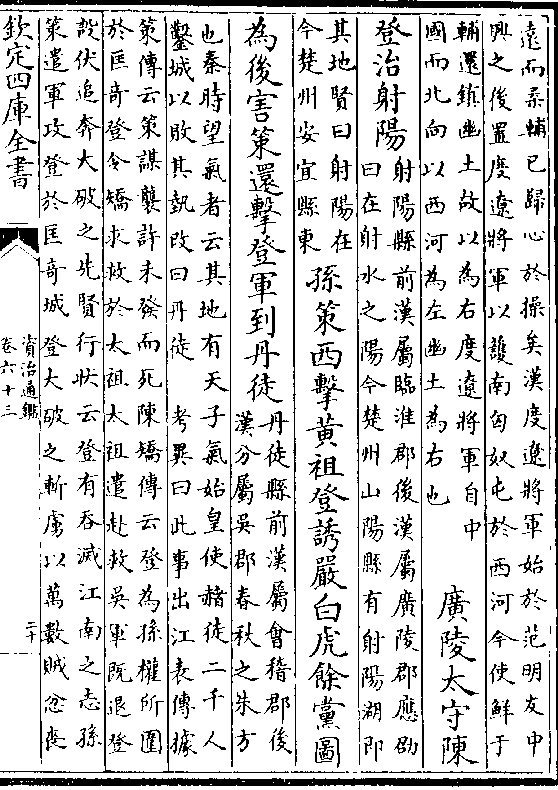 遠而柔輔已歸心於操矣漢度遼將軍始於范明友中
興之後置度遼將軍以護南匈奴屯於西河今使鮮于
輔還鎮幽土故以為右度遼將軍自中
國而北向以西河為左幽土為右也
廣陵太守陳
登治射陽
射陽縣前漢屬臨淮郡後漢屬廣陵郡應劭
曰在射水之陽今楚州山陽縣有射陽湖即
其地賢曰射陽在
今楚州安宜縣東
孫策西擊黄祖登誘嚴白虎餘黨圖
為後害策還擊登軍到丹徒
丹徒縣前漢屬會稽郡後
漢分屬吳郡春秋之朱方
也秦時望氣者云其地有天子氣始皇使赭徒二千人
鑿城以敗其埶改曰丹徒 考異曰此事出江表傳據
策傳云策謀襲許未發而死陳矯傳云登為孫權所圍
於匡奇登令矯求救於太祖太祖遣赴救吳軍既退登
設伏追奔大破之先賢行狀云登有吞滅江南之志孫
策遣軍攻登於匡奇城登大破之斬虜以萬數賊忿喪
欽定四庫全書
資治通鑑
卷六十三
二十